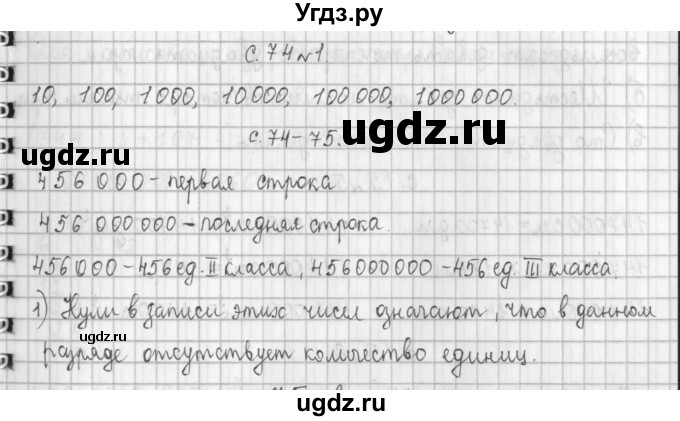 Угдз.ру
с. 74 №1.
10, 100, 1000, 10000, 100000, 1000000.
с. 74-75.
ugdz.ru
ugdz.ru
456 000 - первая строка
456 000 000 - последняя строка.
ugdz.ru
456000 - 456 ед. II класса, 456000000 - 456 ед. III класса.
1) Нули в записи этих чисел означают, что в данном
ugdz.ru
разряде отсутствует количество единиц.
ugdz.ru
ugdz.ru